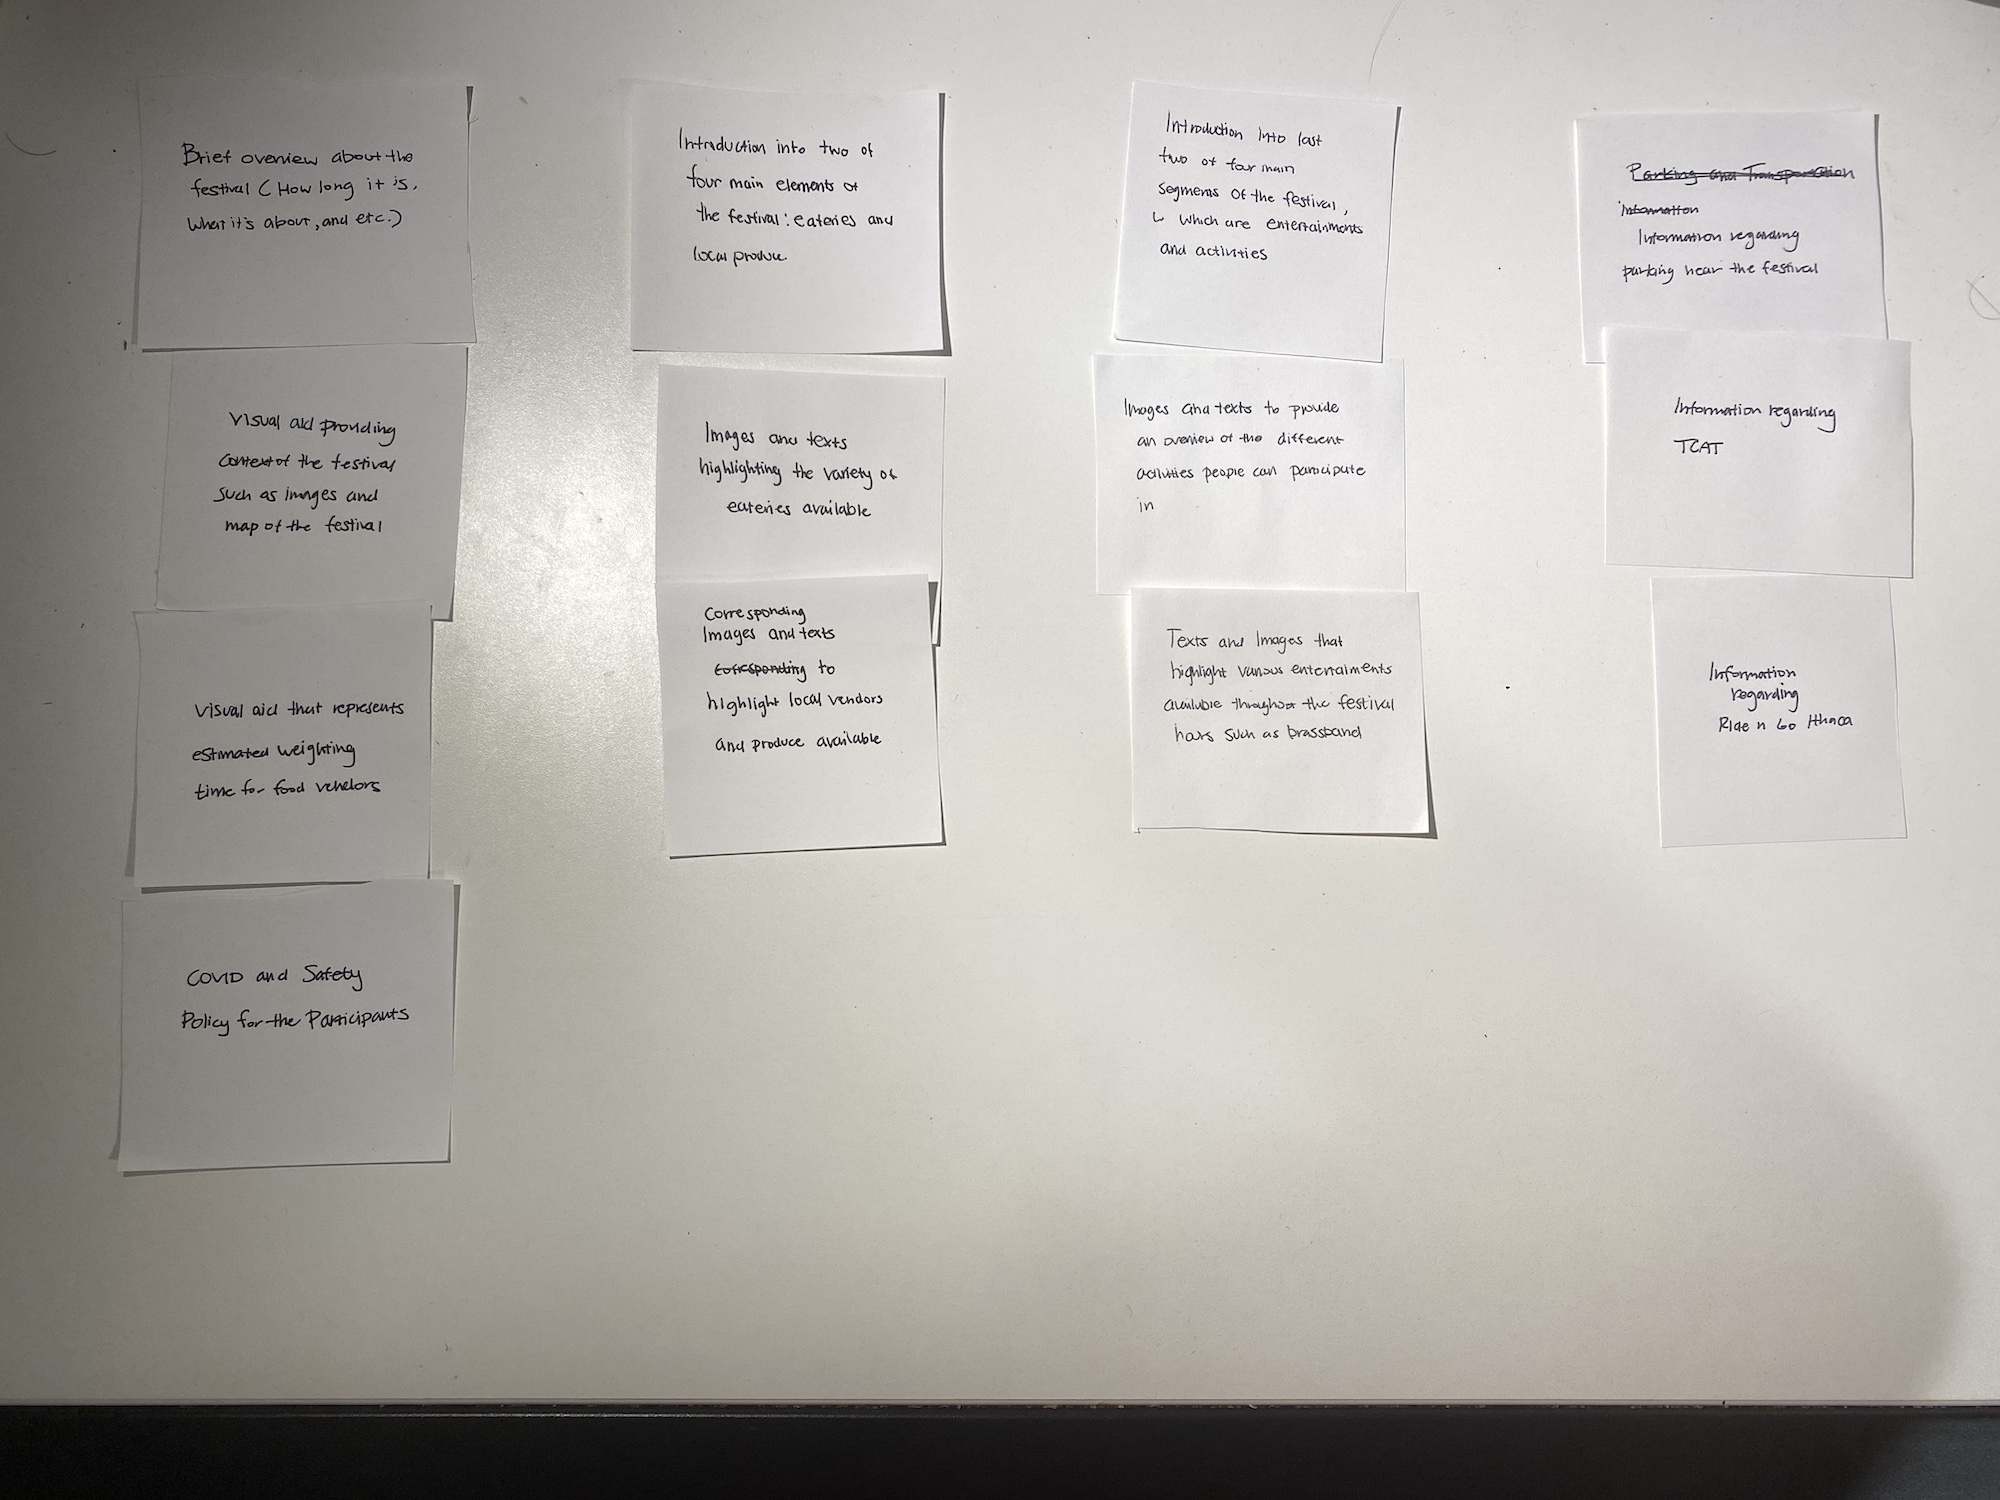 Brief overview about the
festival (How long it is,
what it's about, and etc.)
Visual aid providing
context of the festival
such as images and
map of the festival
Visual aid that represents
estimated weighting
time for food vendors
COVID and Safety
Policy for the Participants
Introduction into two of
four main elements of
the festival: eateries and
local produce.
Images and texts
highlighting the variety of
eateries available
Corresponding
Images and texts
corresponding to
highlight local vendors
and produce available
Introduction into last
two of four main
segments of the festival,
↳ which are entertainments
and activities
Images and texts to provide
an overview of the different
activities people can participate
in
Texts and Images that
highlight various entertaiments
available throughout the festival
hours such as brassband
Parking and Transportation
information
Information regarding
parking near the festival
Information regarding
TCAT
Information
regarding
Ride n Go Ithaca